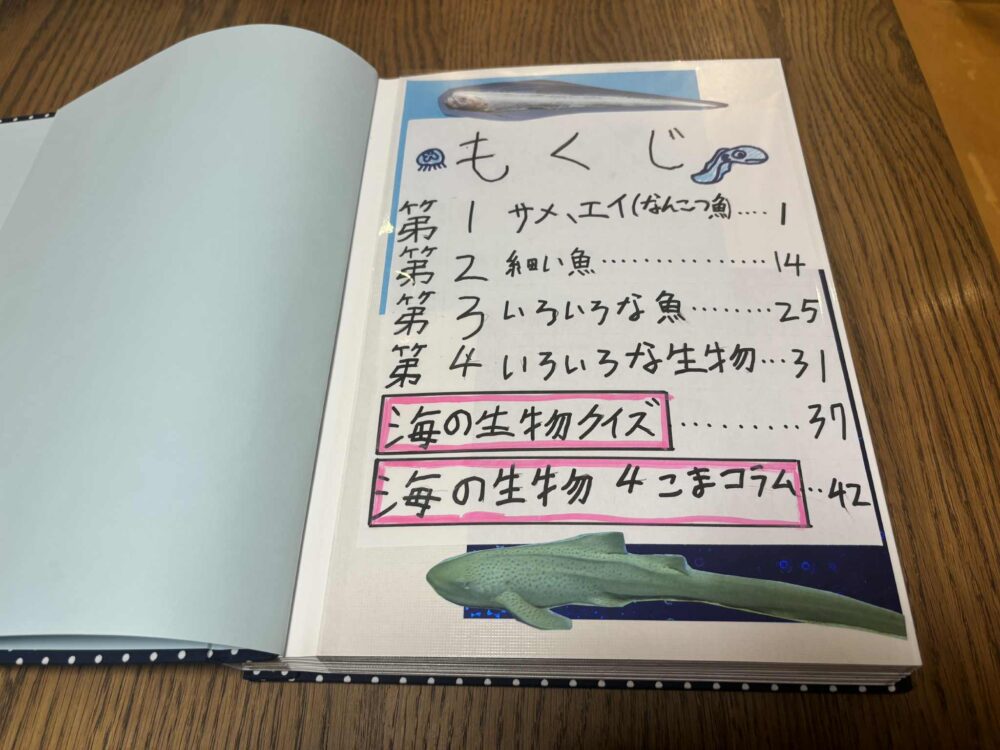 もくじ
第1 サメ、エイ(なんこつ魚)‥‥1
第2 細い魚‥‥‥‥‥‥‥14
第3 いろいろな魚‥‥‥‥25
第4 いろいろな生物‥‥31
海の生物クイズ‥‥‥‥‥37
海の生物4こまコラム‥‥42